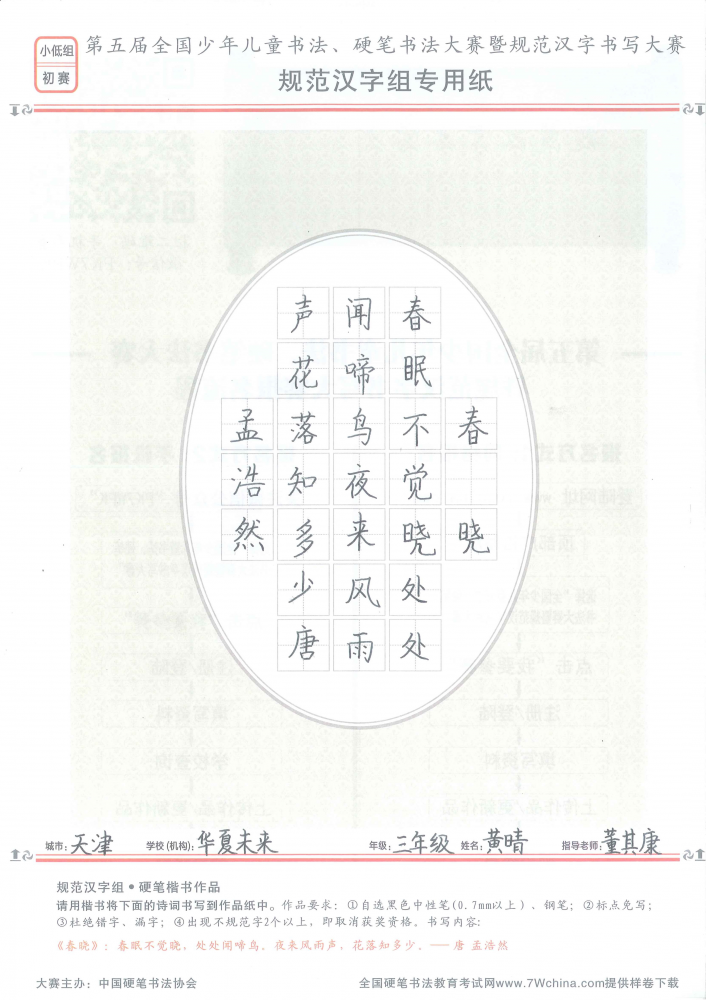 小低组
初赛
第五届全国少年儿童书法、硬笔书法大赛暨规范汉字书写大赛
规范汉字组专用纸
春晓
春眠不觉晓处处
闻啼鸟夜来风雨
声花落知多少唐
孟浩然
城市：天津 学校(机构)：华夏未来 年级：三年级 姓名：黄晴 指导老师：董其康
规范汉字组•硬笔楷书作品
请用楷书将下面的诗词书写到作品纸中。作品要求：①自选黑色中性笔(0.7mm以上)、钢笔；②标点免写；
③杜绝错字、漏字；④出现不规范字2个以上，即取消获奖资格。书写内容：
《春晓》：春眠不觉晓，处处闻啼鸟。夜来风雨声，花落知多少。——唐 孟浩然
大赛主办：中国硬笔书法协会 全国硬笔书法教育考试网www.7Wchina.com提供样卷下载